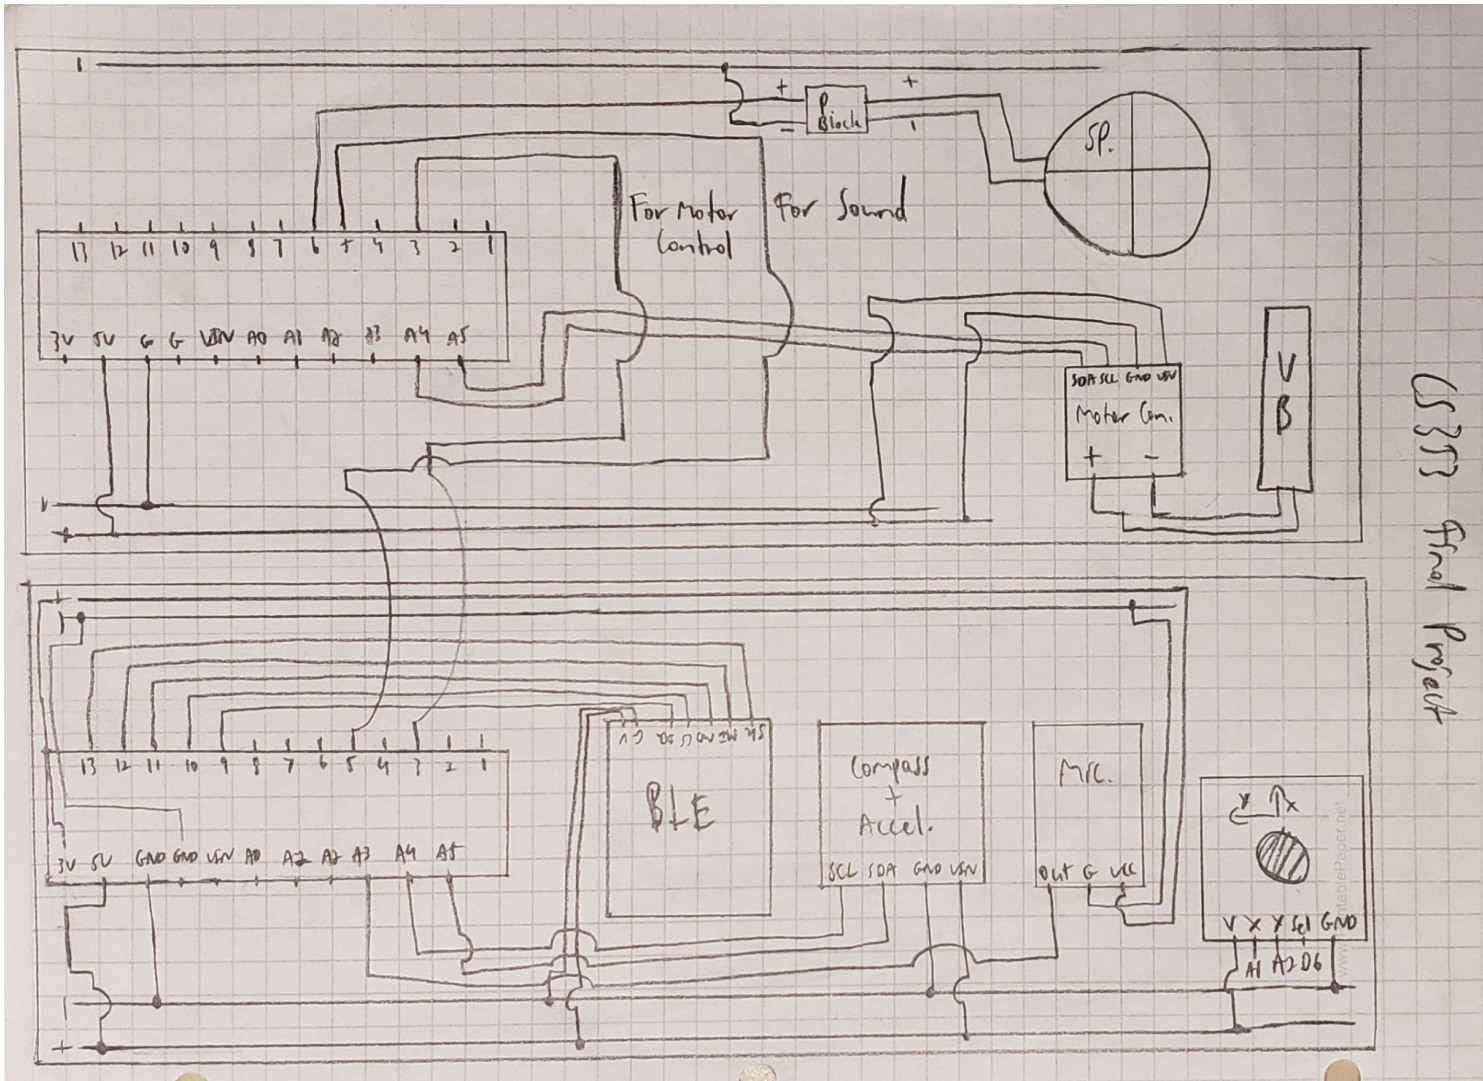 + -
P
Block
+ -
SP.
For Motor
Control
For Sound
13 12 11 10 9 8 7 6 5 4 3 2 1
3V 5V G G VIN A0 A1 A2 A3 A4 A5
SDA SCL GND VIN
Motor Con.
+ -
V
B
-
+
CS3753 Final Project
+
13 12 11 10 9 8 7 6 5 4 3 2 1
3V 5V GND GND VIN A0 A2 A2 A3 A4 A5
BLE
Compass
+
Accel.
SCL SDA GND VIN
Mic.
OUT G VCC
Y X
V X Y Sel GND
A1 A2 D6
-
+